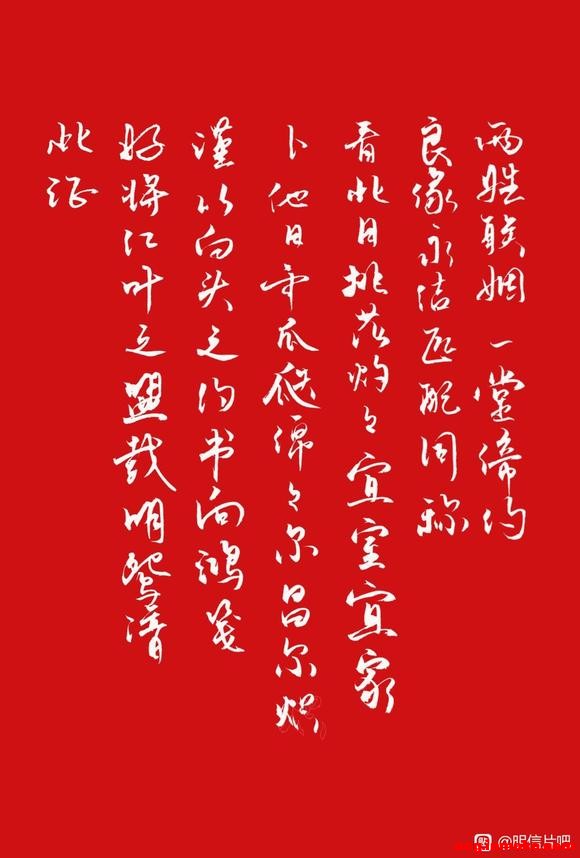 两姓联姻一堂缔约
良缘永结匹配同称
看此日桃花灼々宜室宜家
卜他日瓜瓞绵々尔昌尔炽
谨以白头之约书向鸿笺
好将红叶之盟载明鸳谱
此证
@明信片吧